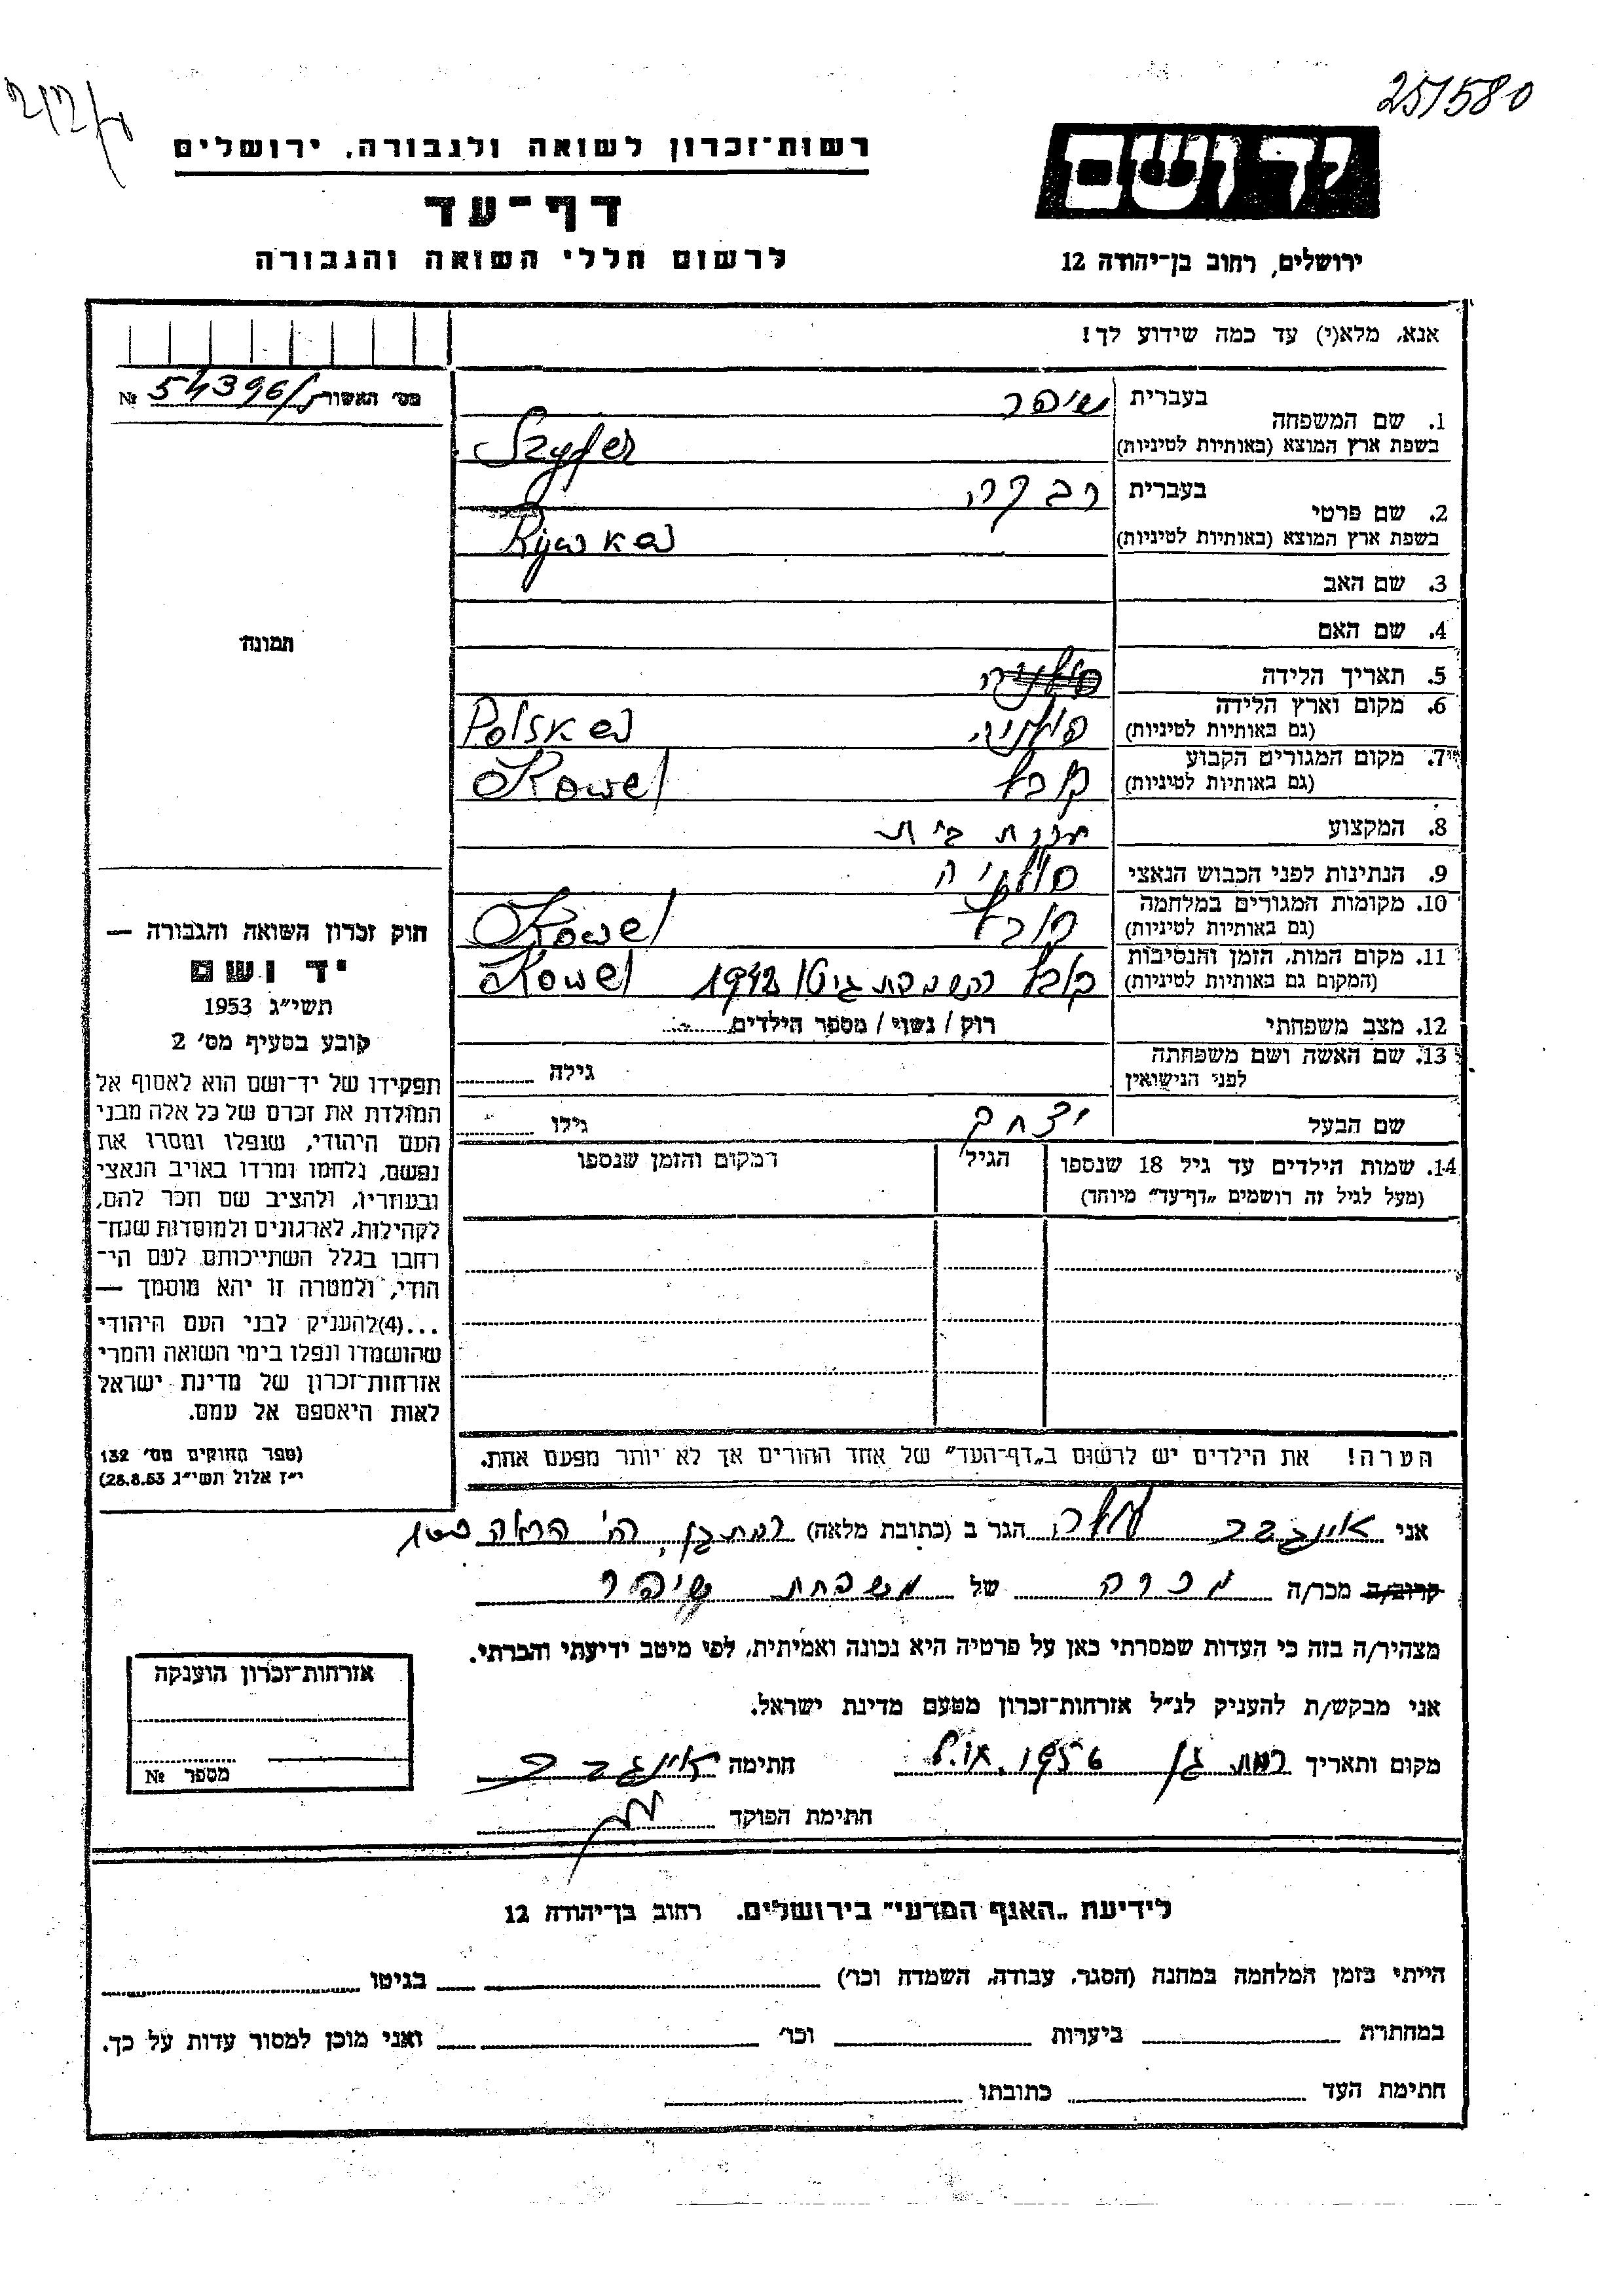 251580
רשות־זכרון לשואה ולגבורה, ירושלים
יד ושם
דף־עד
לרשום חללי השואה והגבורה
ירושלים, רחוב בן־יהודה 12
אנא, מלא(י) עד כמה שידוע לך!
מס׳ האשור 54396/ № 
1. שם המשפחה בעברית שיפר
בשפת ארץ המוצא (באותיות לטיניות) Szyfer
2. שם פרטי בעברית רבקה
בשפת ארץ המוצא (באותיות לטיניות) Rywka
3. שם האב
4. שם האם
תמונה
5. תאריך הלידה
6. מקום וארץ הלידה (גם באותיות לטיניות) פולניה Polska
7. מקום המגורים הקבוע (גם באותיות לטיניות) קובל Kowel
8. המקצוע עקרת בית
9. הנתינות לפני הכבוש הנאצי פולניה
10. מקומות המגורים במלחמה (גם באותיות לטיניות) קובל Kowel
11. מקום המות, הזמן והנסיבות (המקום גם באותיות לטיניות) קובל בהשמדת גיטו 1942 Kowel
12. מצב משפחתי רוק / נשוי / מספר הילדים
13. שם האשה ושם משפחתה לפני הנישואין גילה
שם הבעל יצחק גילו
14. שמות הילדים עד גיל 18 שנספו (מעל לגיל זה רושמים „דף־עד" מיוחד) הגיל המקום והזמן שנספו
הערה! את הילדים יש לרשום ב„דף־העד" של אחד ההורים אך לא יותר מפעם אחת.
חוק זכרון השואה והגבורה —
יד ושם
תשי״ג 1953
קובע בסעיף מס׳ 2
תפקידו של יד־ושם הוא לאסוף אל
המולדת את זכרם של כל אלה מבני
העם היהודי, שנפלו ומסרו את
נפשם, נלחמו ומרדו באויב הנאצי
ובעוזריו, ולהציב שם וזכר להם,
לקהילות, לארגונים ולמוסדות שנח־
רחבו בגלל השתייכותם לעם הי־
הודי, ולמטרה זו יהא מוסמך —
...(4)להעניק לבני העם היהודי
שהושמדו ונפלו בימי השואה והמרי
אזרחות־זכרון של מדינת ישראל
לאות היאספם אל עמם.
(ספר החוקים מס׳ 132
י״ז אלול תשי״ג 28.8.53)
אני איינגבר הגר ב (כתובת מלאה) רמת גן, רח׳ הראה
קרוב/ה מכר/ה מכרה של משפחת שיפר
מצהיר/ה בזה כי העדות שמסרתי כאן על פרטיה היא נכונה ואמיתית, לפי מיטב ידיעתי והכרתי.
אני מבקש/ת להעניק לנ״ל אזרחות־זכרון מטעם מדינת ישראל.
מקום ותאריך רמת גן 1956 חתימה איינגבר
חתימת הפוקד
אזרחות־זכרון הוענקה
מספר №
לידיעת „האגף המדעי" בירושלים. רחוב בן־יהודה 12
הייתי בזמן המלחמה במחנה (הסגר, עבודה, השמדה וכו׳) בגיטו
במחתרת ביערות וכו׳ ואני מוכן למסור עדות על כך.
חתימת העד כתובתו